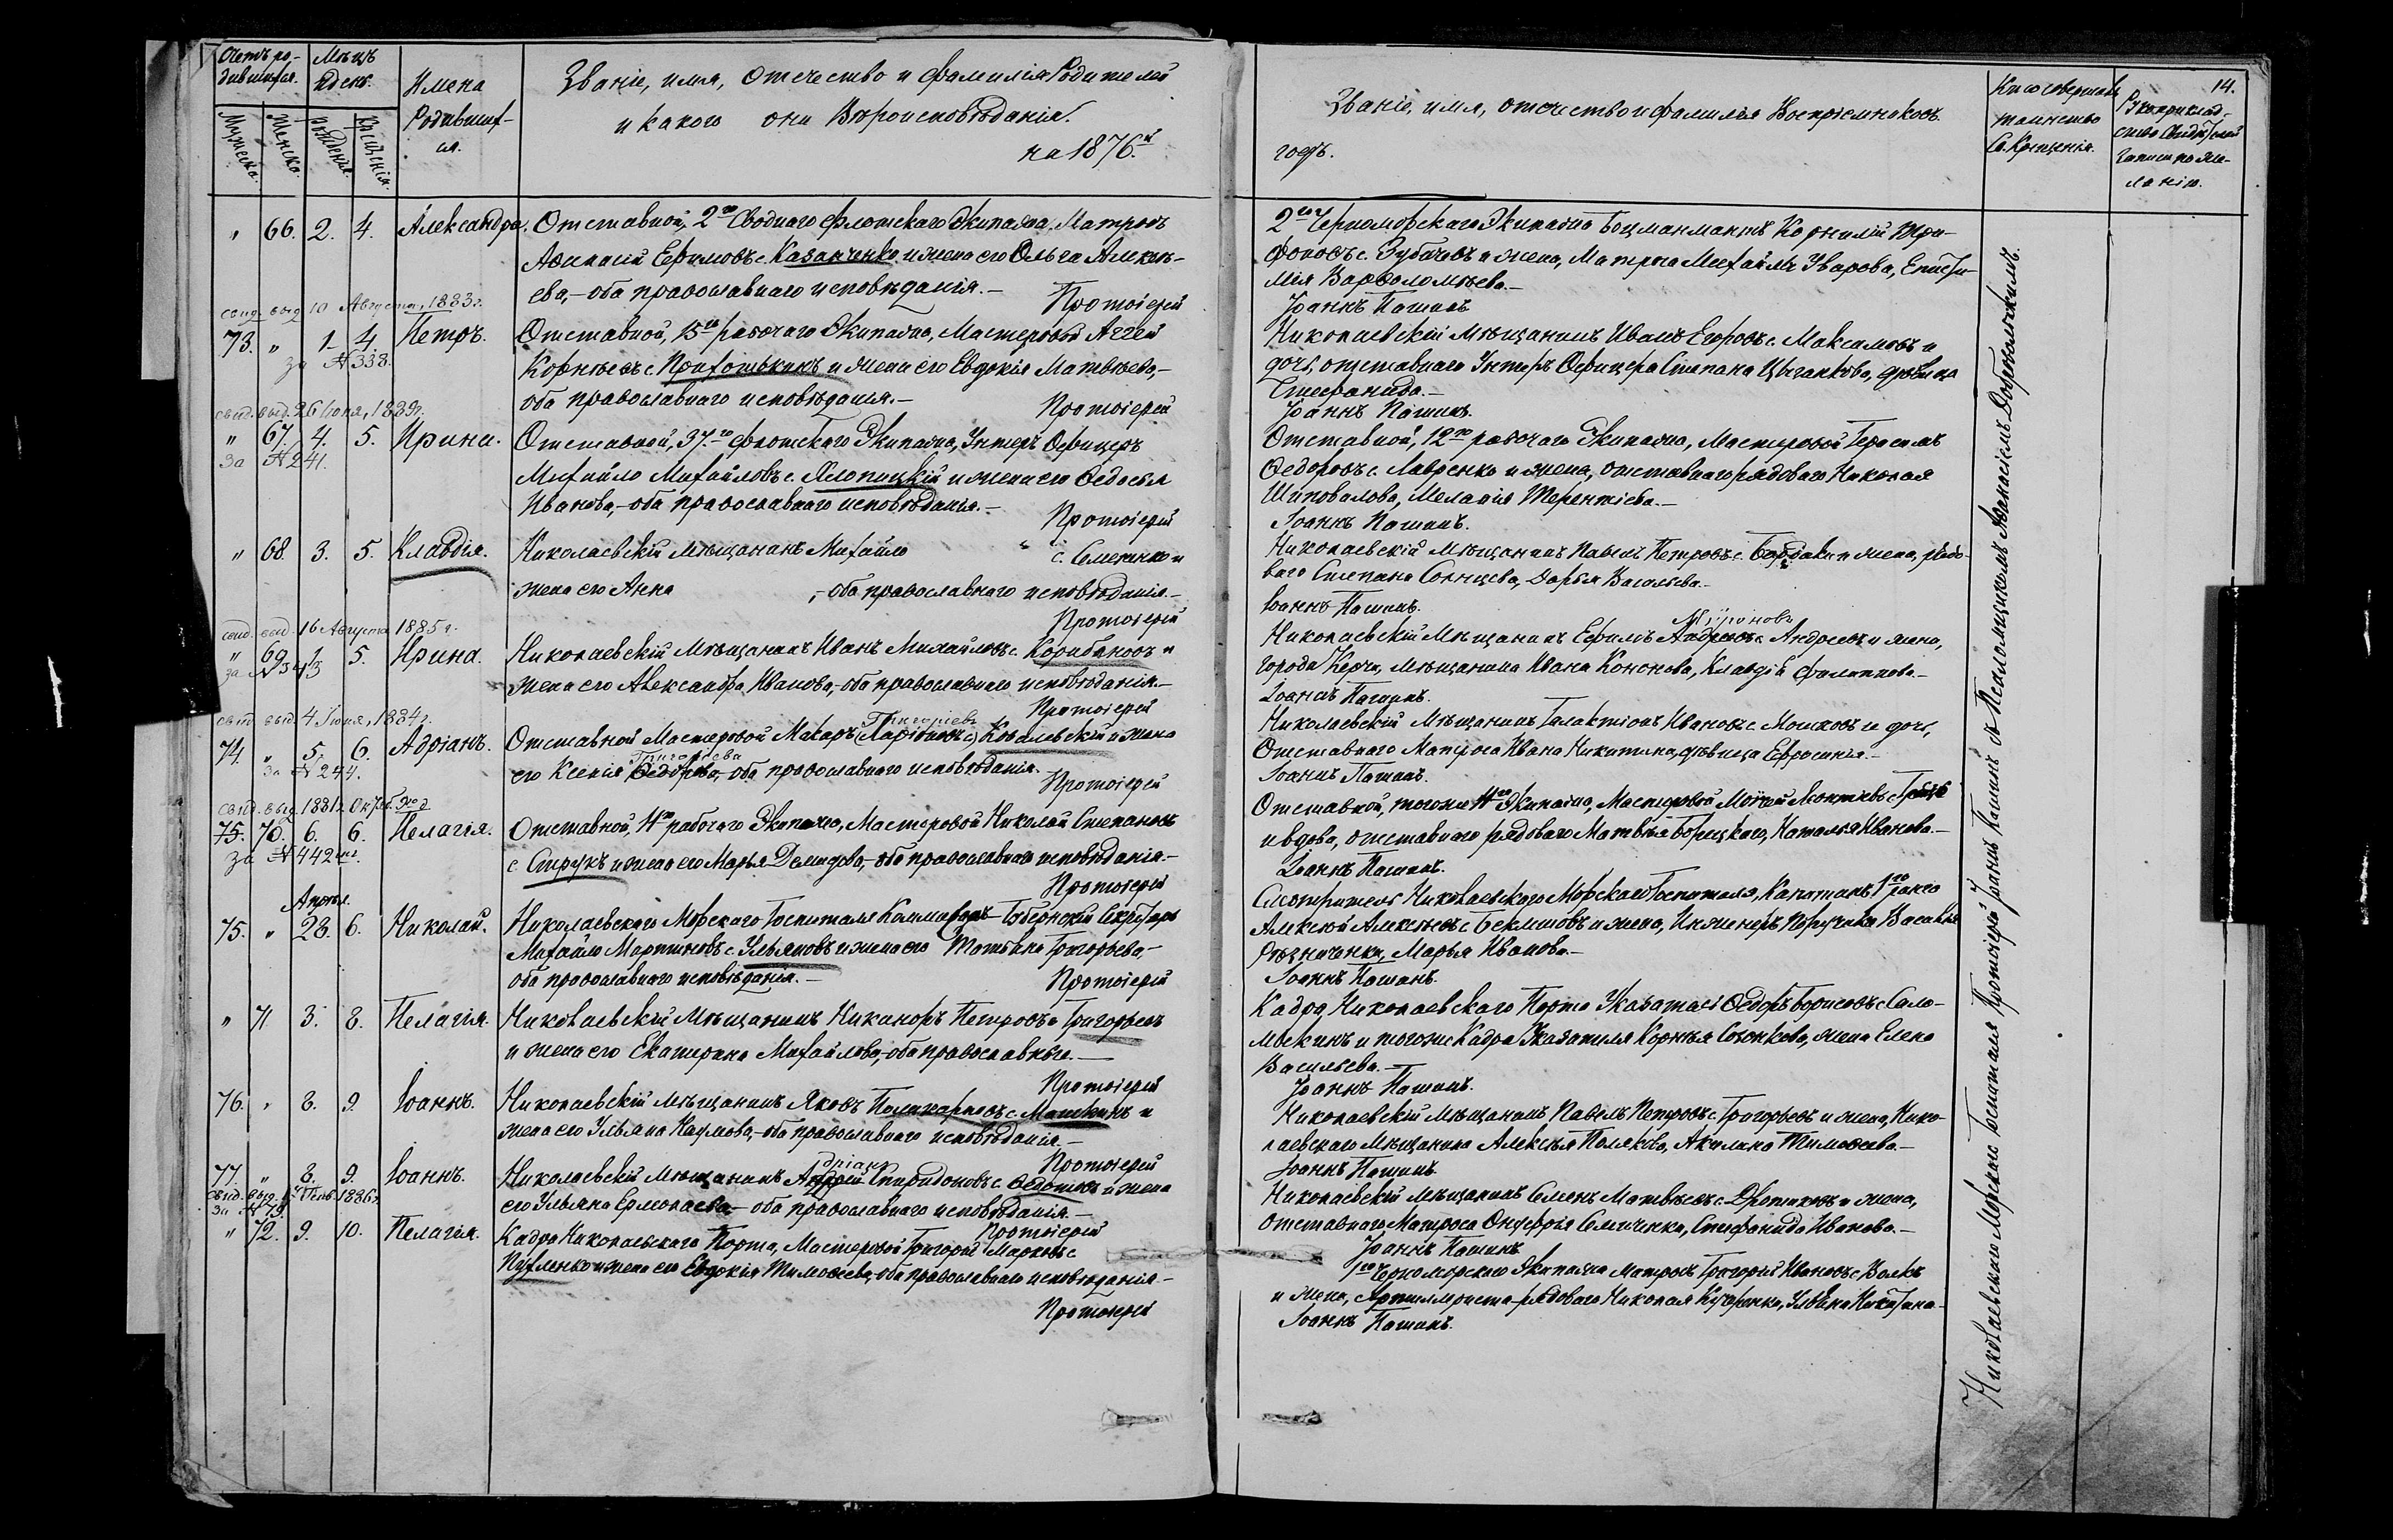 Счетъ ро-
дившихся.
Мѣсяцъ
и день.
Имена
Родивших-
ся.
Званіе, имя, отечество и фамилія Родителей
и какого они Вѣроисповѣданія.
на 1876.й
Мужеска.
Женска.
Рожденія.
Крещенія.
Званіе, имя, отечество и фамилія Воспріемниковъ.
годъ.
Кто совершалъ
таинство
Св. Крещенія.
14.
Рукоприклад-
ство Свидѣтелей
записи по же-
ланію.
" 66. 2. 4. Александра. Отставной, 2го Сводного флотскаго Экипажа, Матросъ
Аѳанасій Ефимовъ с. Казанченко и жена его Ольга Алексѣ-
ева,- оба православнаго исповѣданія.-
Протоіерей
2го Черноморскаго Экипажа Боцманматъ Корнилій Три-
фоновъ с. Зубачевъ и жена, Матроса Михайла Уварова, Епистимія Варѳоломѣева.-
Іоаннъ Пашинъ
свид. выд. 10 Августа, 1883 г.
73. " 1. 4. Петръ. Отставной, 15го рабочаго Экипажа, Мастеровой Аггей
за № 338.
Корнѣевъ с. Прихотькинъ и жена его Евдокія Матвѣева,-
оба православнаго исповѣданія.-
Протоіерей
Николаевскій Мѣщанинъ Иванъ Егоровъ с. Максимовъ и
дочь, отставнаго Унтеръ Офицера Степана Цыганкова, дѣвица
Стефанида.-
Іоаннъ Пашинъ.
свид. выд. 26 Іюня, 1889 г.
" 67. 4. 5. Ирина. Отставной, 37.го флотскаго Экипажа, Унтеръ Офицеръ
за № 241.
Михайло Михайловъ с. Хлопицкій и жена его Ѳедосья
Иванова,- оба православнаго исповѣданія.-
Протоіерей
Отставной, 12го рабочаго Экипажа, Мастеровой Герасимъ
Ѳедоровъ с. Лавренко и жена, отставнаго рядоваго Николая
Шиповалова, Меланія Терентіева.-
Іоаннъ Пашинъ.
" 68 3. 5. Клавдія. Николаевскій мѣщанинъ Михайло " с. Сметанко и
жена его Анна ,- оба православнаго исповѣданія.-
Протоіерей
Николаевскій Мѣщанинъ Павелъ Петровъ с. и жена, рядо-
ваго Степана Солнцева, Дарья Васильева.-
Іоаннъ Пашинъ.
свид. выд. 16 Августа 1885 г.
" 69. 1. 5. Ирина. Николаевскій Мѣщанинъ Иванъ Михайловъ с. Корибановъ и
за №
жена его Александра Иванова,- оба православнаго исповѣданія.-
Протоіерей
Николаевскій Мѣщанинъ Ефимъ Андреевъ и жена,
города Керчи, мѣщанина Ивана Кононова, Клавдія Филиппова.-
Іоаннъ Пашинъ.
свид. выд. 4 Іюня, 1884 г.
Григоріевъ
74. " 5. 6. Адріанъ. Отставной Мастеровой Макаръ (Ларіоновъ с.) Ковалевскій и жена
за № 244.
Григорьева
его Ксенія Ѳедорова,- оба православнаго исповѣданія.
Протоіерей
Николаевскій Мѣщанинъ Галактіонъ Ивановъ с. Мошковъ и дочь,
Отставнаго Матроса Ивана Никитина, дѣвица Ефросинья.-
Іоаннъ Пашинъ.
свид. выд. 1881 г. Октяб. 9го д.
75. 70. 6. 6. Пелагія. Отставной, 4го рабочаго Экипажа, Мастеровой Николай Степановъ
за № 442
с. Струкъ и жена его Марья Демидова,- оба православнаго исповѣданія.-
Протоіерей
Отставной, тогоже 4го Экипажа, Мастеровой Моисей Леонтьевъ с.
и вдова, отставнаго рядоваго Матвѣя Борецкаго, Наталья Иванова.-
Іоаннъ Пашинъ.
Апрѣля.
75. " 28. 6. Николай. Николаевскаго Морскаго Госпиталя Губернскій Секретарь
Михайло Мартиновъ с. Ульяновъ и жена его Татьяна Григорьева,-
оба православнаго исповѣданія.-
Протоіерей
Смотритель Николаевскаго Морскаго Госпиталя, Капитанъ 1го ранга
Алексѣй Алексѣевъ с. Беклешовъ и жена, Инженеръ Поручика Василія
Марья Иванова.-
Іоаннъ Пашинъ.
" 71 3. 8. Пелагія. Николаевскій Мѣщанинъ Никаноръ Петровъ с. Григорьевъ
и жена его Екатерина Михайлова,- оба православные.-
Протоіерей
Кадра Николаевскаго Порта Указатель Ѳедоръ Борисовъ с. Сало-
мыкинъ и тогоже Кадра Указателя Корнѣя жена Елена
Васильева.-
Іоаннъ Пашинъ.
76. " 8. 9. Іоаннъ. Николаевскій мѣщанинъ Яковъ Поликарповъ с. Машкинъ и
жена его Ульяна Наумова,- оба православнаго исповѣданія.-
Протоіерей
Николаевскій Мѣщанинъ Павелъ Петровъ с. Григорьевъ и жена, Нико-
лаевскаго Мѣщанина Алексѣя Полякова, Акилина Тимоѳеева.-
Іоаннъ Пашинъ.
77. " 8. 9. Іоаннъ. Николаевскій Мѣщанинъ Адріанъ Спиридоновъ с. и жена
свид. выд. Генв. 1886 г.
за № 79.
его Ульяна Ермолаева- оба православнаго исповѣданія.-
Протоіерей
Николаевскій Мѣщанинъ Семенъ Матвѣевъ с. и жена,
отставнаго Матроса Онуфрія Семичика, Стефанида Иванова.-
Іоаннъ Пашинъ
" 72. 9. 10. Пелагія. Кадра Николаевскаго Порта, Мастеровой Григорій Марковъ с
Пухленко и жена его Евдокія Тимоѳеева,- оба православнаго исповѣданія.-
Протоіерей
1го Черноморскаго Экипажа Матросъ Григорій Ивановъ с. Волкъ
и жена, Артиллериста рядоваго Николая Кухаренка, Ульяна Никитина.-
Іоаннъ Пашинъ.
Николаевскаго Морскаго Госпиталя Протоіерей Іоаннъ Пашинъ съ Псаломщикомъ Аѳанасіемъ Добровольскимъ.